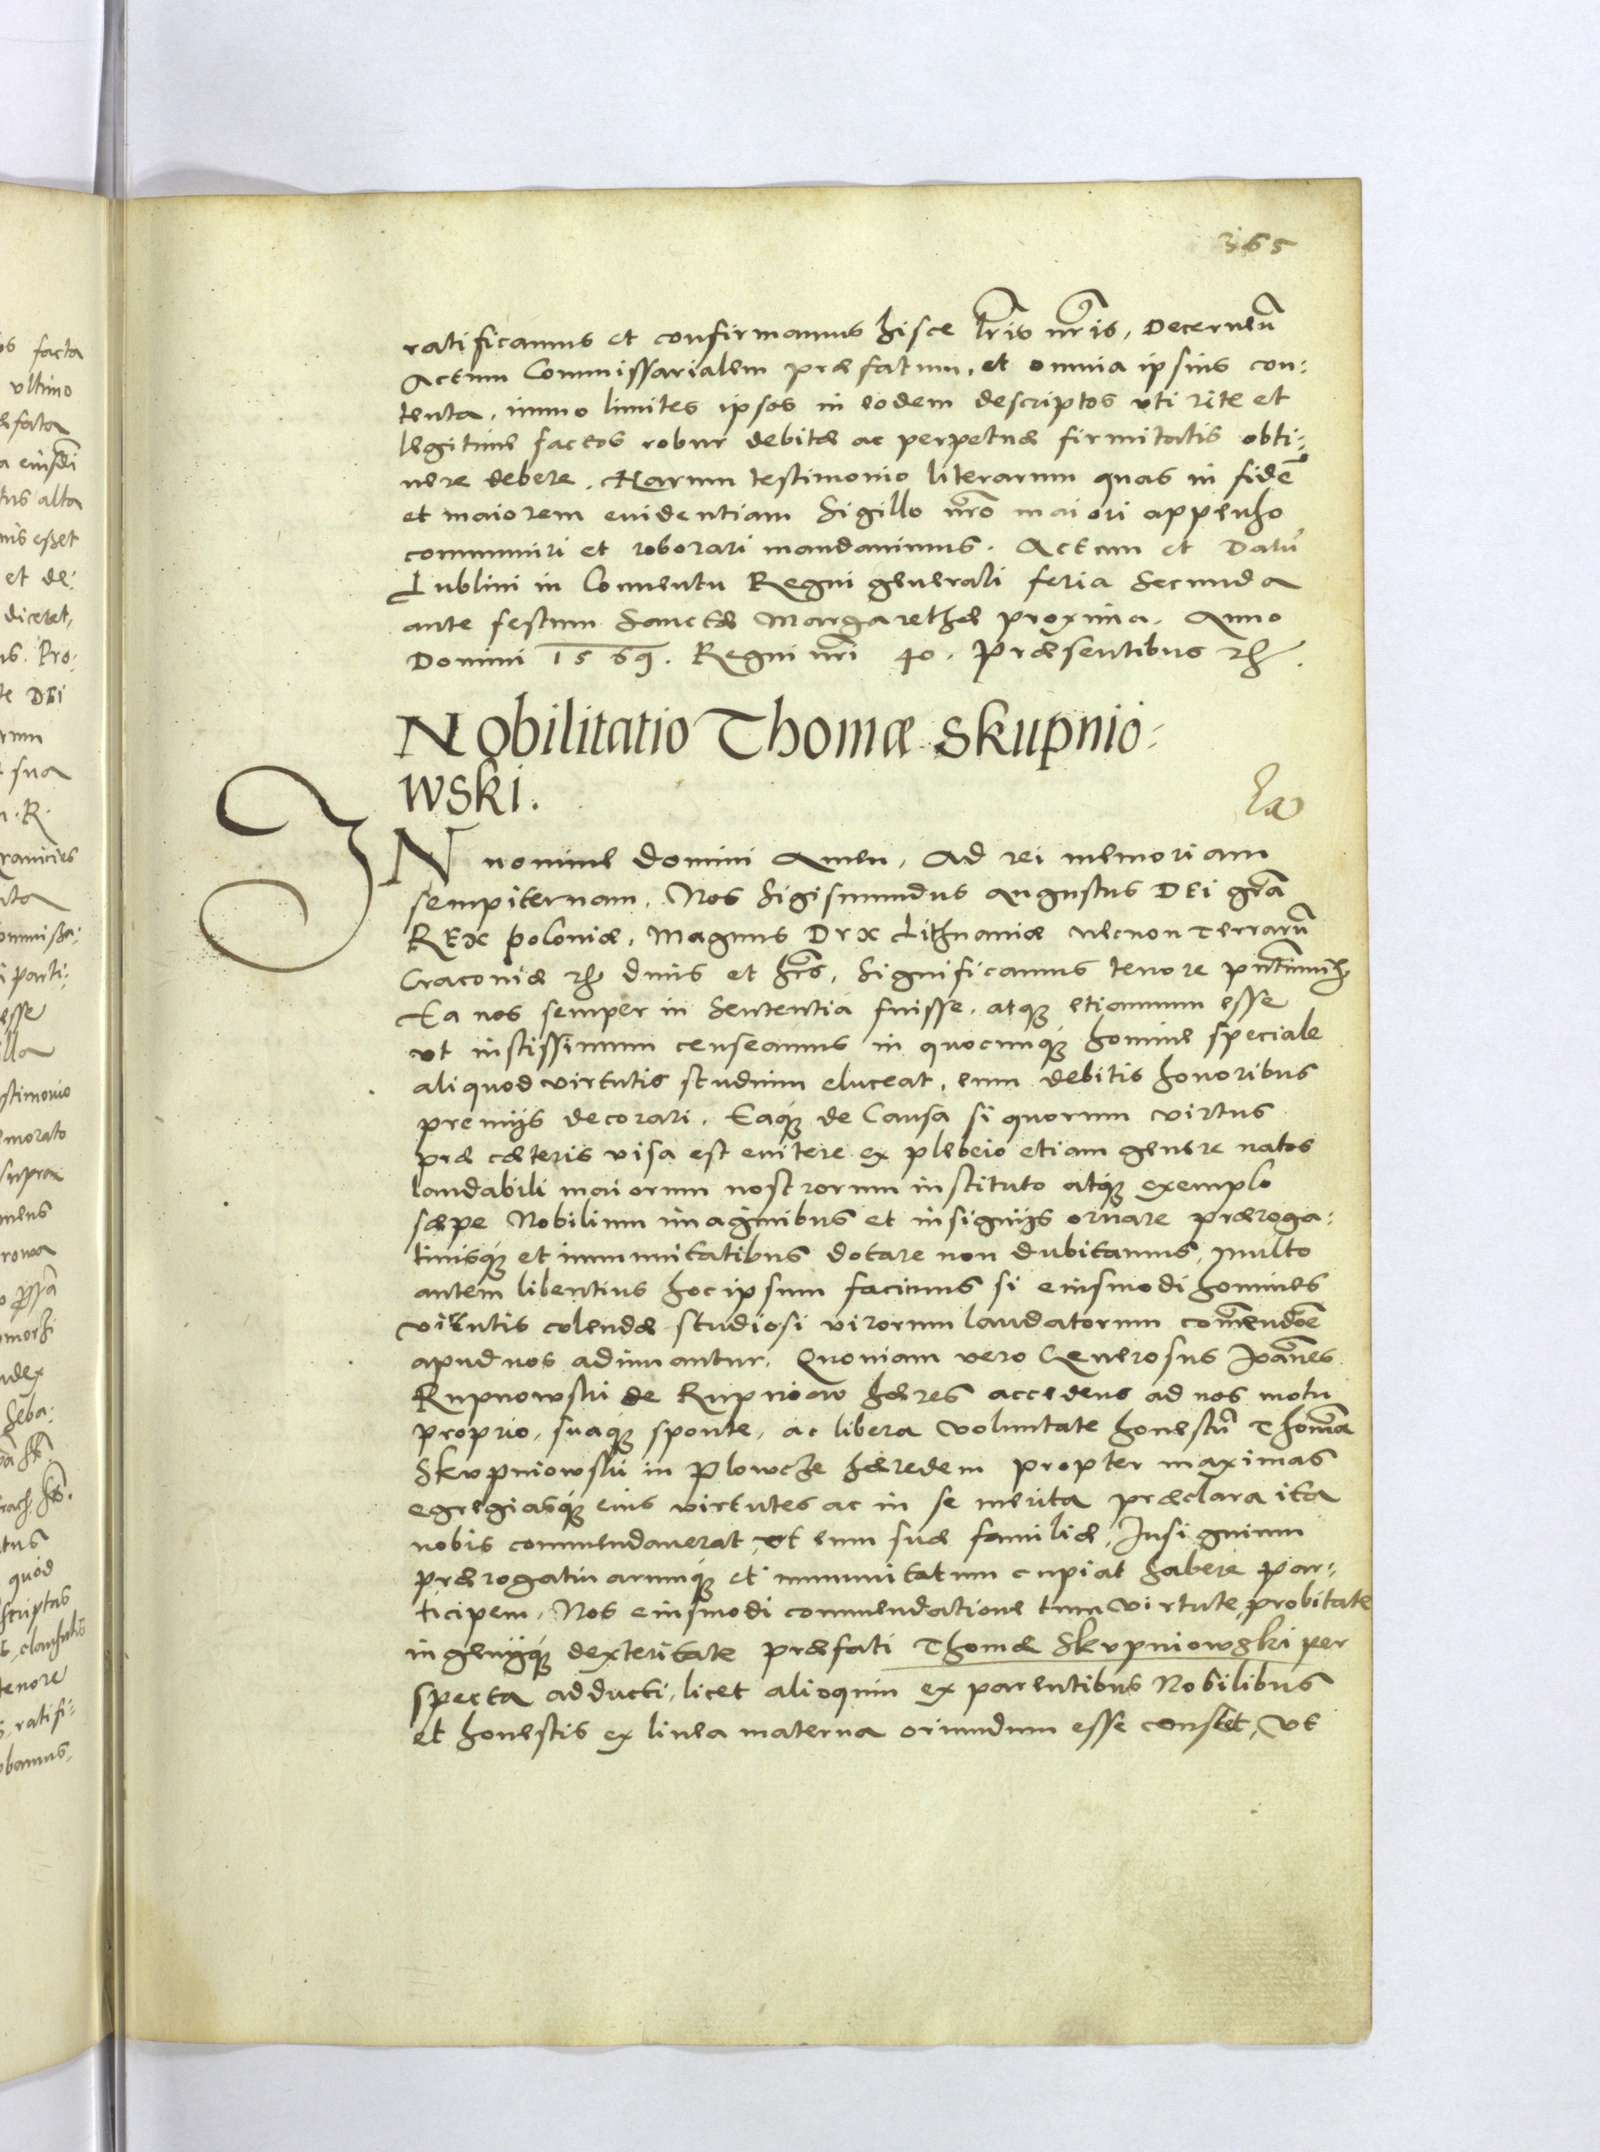 365
ratificamus et confirmamus hisce lris nris, Decernen̄
Actum Commissarialem præfatum, et omnia ipsius con:
tenta, immo limites ipsos in eodem descriptos vti rite et
legitime factos robur debitæ ac perpetuæ firmitatis obti:
nere debere. Harum testimonio literarum quas in fidē
et maiorem euidentiam Sigillo nrō maiori appenso
communiri et roborari mandauimus. Actum et Datū
Lublini in Conuentu Regni generali feria Secunda
ante festum Sanctæ Margarethæ proxima. Anno
Domini 1569. Regni nrī 40. Præsentibus etc.
Nobilitatio Thomæ Skupnio:
wski.
IN nomine Domini Amen. Ad rei memoriam
sempiternam. Nos Sigismundus Augustus DEi grā
REX Poloniæ, Magnus Dvx Lithuaniæ necnon Terrarū
Cracouiæ etc dnus et hrēs, Significamus tenore pntium etc
Ea nos semper in Sententia fuisse, atq̃ etiamnum esse
vt iustissimum censeamus in quocunq̃ homine speciale
aliquod virtutis studium eluceat, eum debitis honoribus
premijs decorari. Eaq̃ de Causa si quorum virtus
præ cæteris visa est enitere ex plebeio etiam genere natos
laudabili maiorum nostrorum instituto atq̃ exemplo
sæpe Nobilium imaginibus et insignijs ornare præroga:
tiuisq̃ et immunitatibus dotare non dubitamus, multo
autem libentius hoc ipsum facimus si eiusmodi homines
virtutis colendæ studiosi virorum laudatorum com̄endōe
apud nos adiuuantur. Quoniam vero Generosus Ioannes
Rupnowski de Rupniow hæres accedens ad nos motu
proprio, suaq̃ sponte, ac libera voluntate honestū Thomā
Skvpniowski in Plowcze hæredem propter maximas
egregiasq̃ eius virtutes ac in se merita præclara ita
nobis commendauerat, vt eum suæ familiæ, Insignium
prærogatiuarumq̃ et immunitatum cupiat habere par:
ticipem, Nos eiusmodi commendatione tum virtute, probitate
ingenijq̃ dexteritate præfati Thomæ Skvpniowski per
specta adducti, licet alioquin ex parentibus Nobilibus
et honestis ex linea materna oriundum esse constet, vt